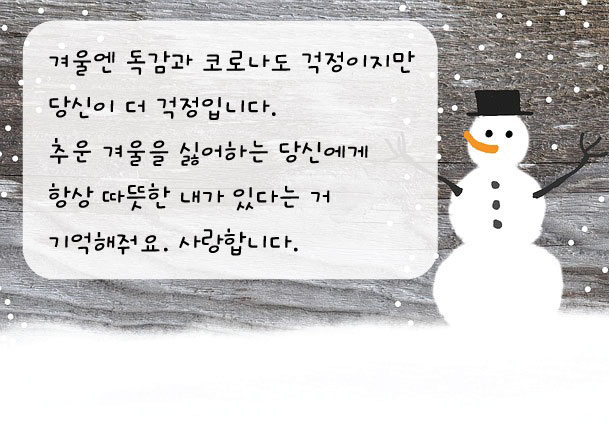 겨울엔 독감과 코로나도 걱정이지만
당신이 더 걱정입니다.
추운 겨울을 싫어하는 당신에게
항상 따뜻한 내가 있다는 거
기억해줘요. 사랑합니다.